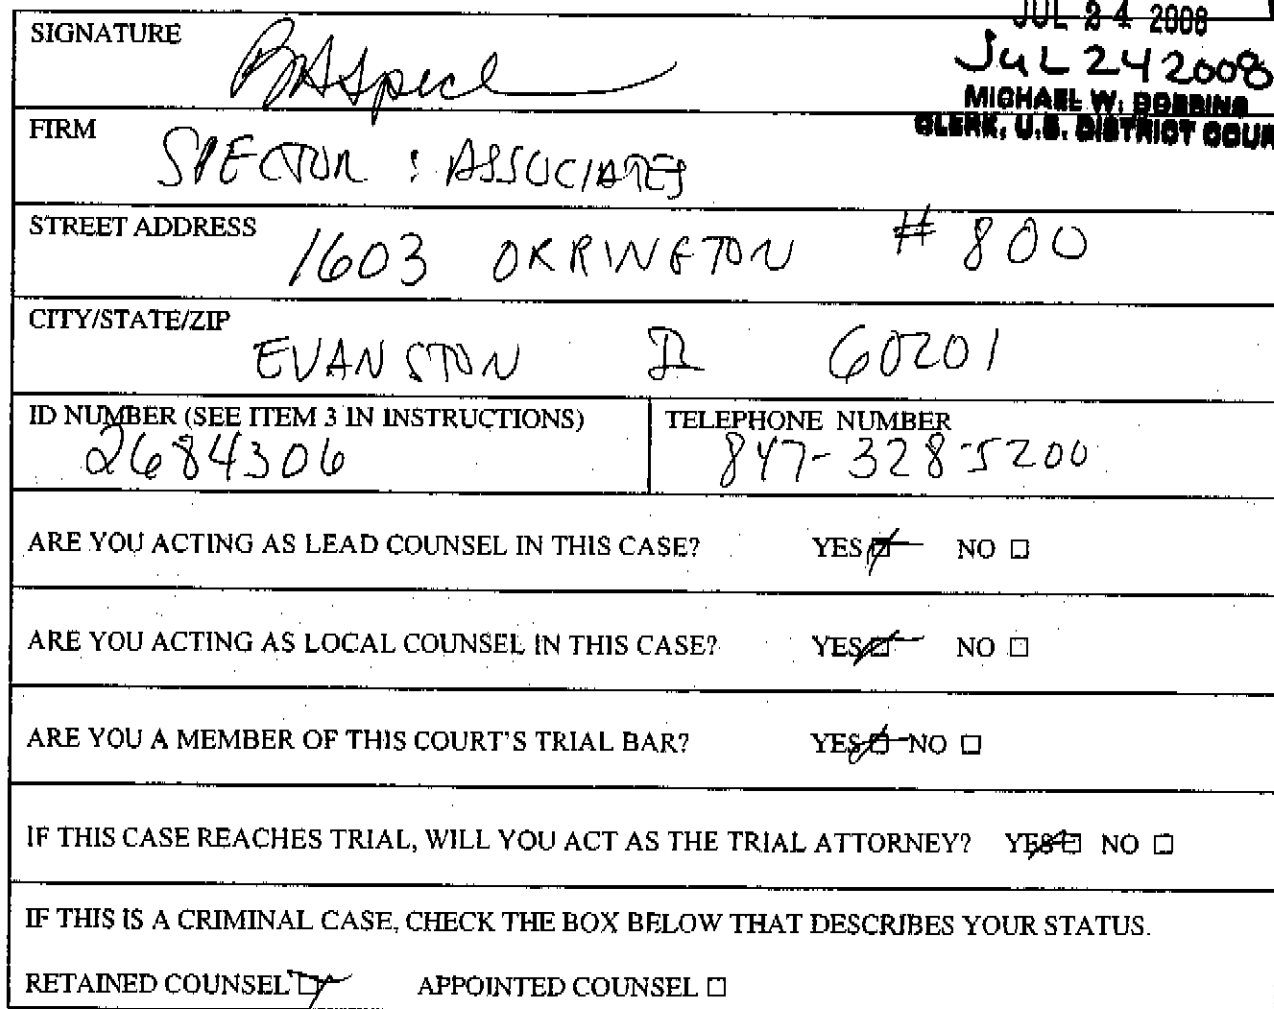 JUL 24 2008
SIGNATURE
JuL 24 2008
MICHAEL W. DOBBINS
CLERK, U.S. DISTRICT COUR
FIRM
SPECTOR & ASSOCIATES
STREET ADDRESS 1603 ORRINGTON # 800
CITY/STATE/ZIP
EVANSTON IL 60201
ID NUMBER (SEE ITEM 3 IN INSTRUCTIONS) TELEPHONE NUMBER
2684306 847-328-5200
ARE YOU ACTING AS LEAD COUNSEL IN THIS CASE? YES NO
ARE YOU ACTING AS LOCAL COUNSEL IN THIS CASE? YES NO
ARE YOU A MEMBER OF THIS COURT'S TRIAL BAR? YES NO
IF THIS CASE REACHES TRIAL, WILL YOU ACT AS THE TRIAL ATTORNEY? YES NO
IF THIS IS A CRIMINAL CASE, CHECK THE BOX BELOW THAT DESCRIBES YOUR STATUS.
RETAINED COUNSEL APPOINTED COUNSEL